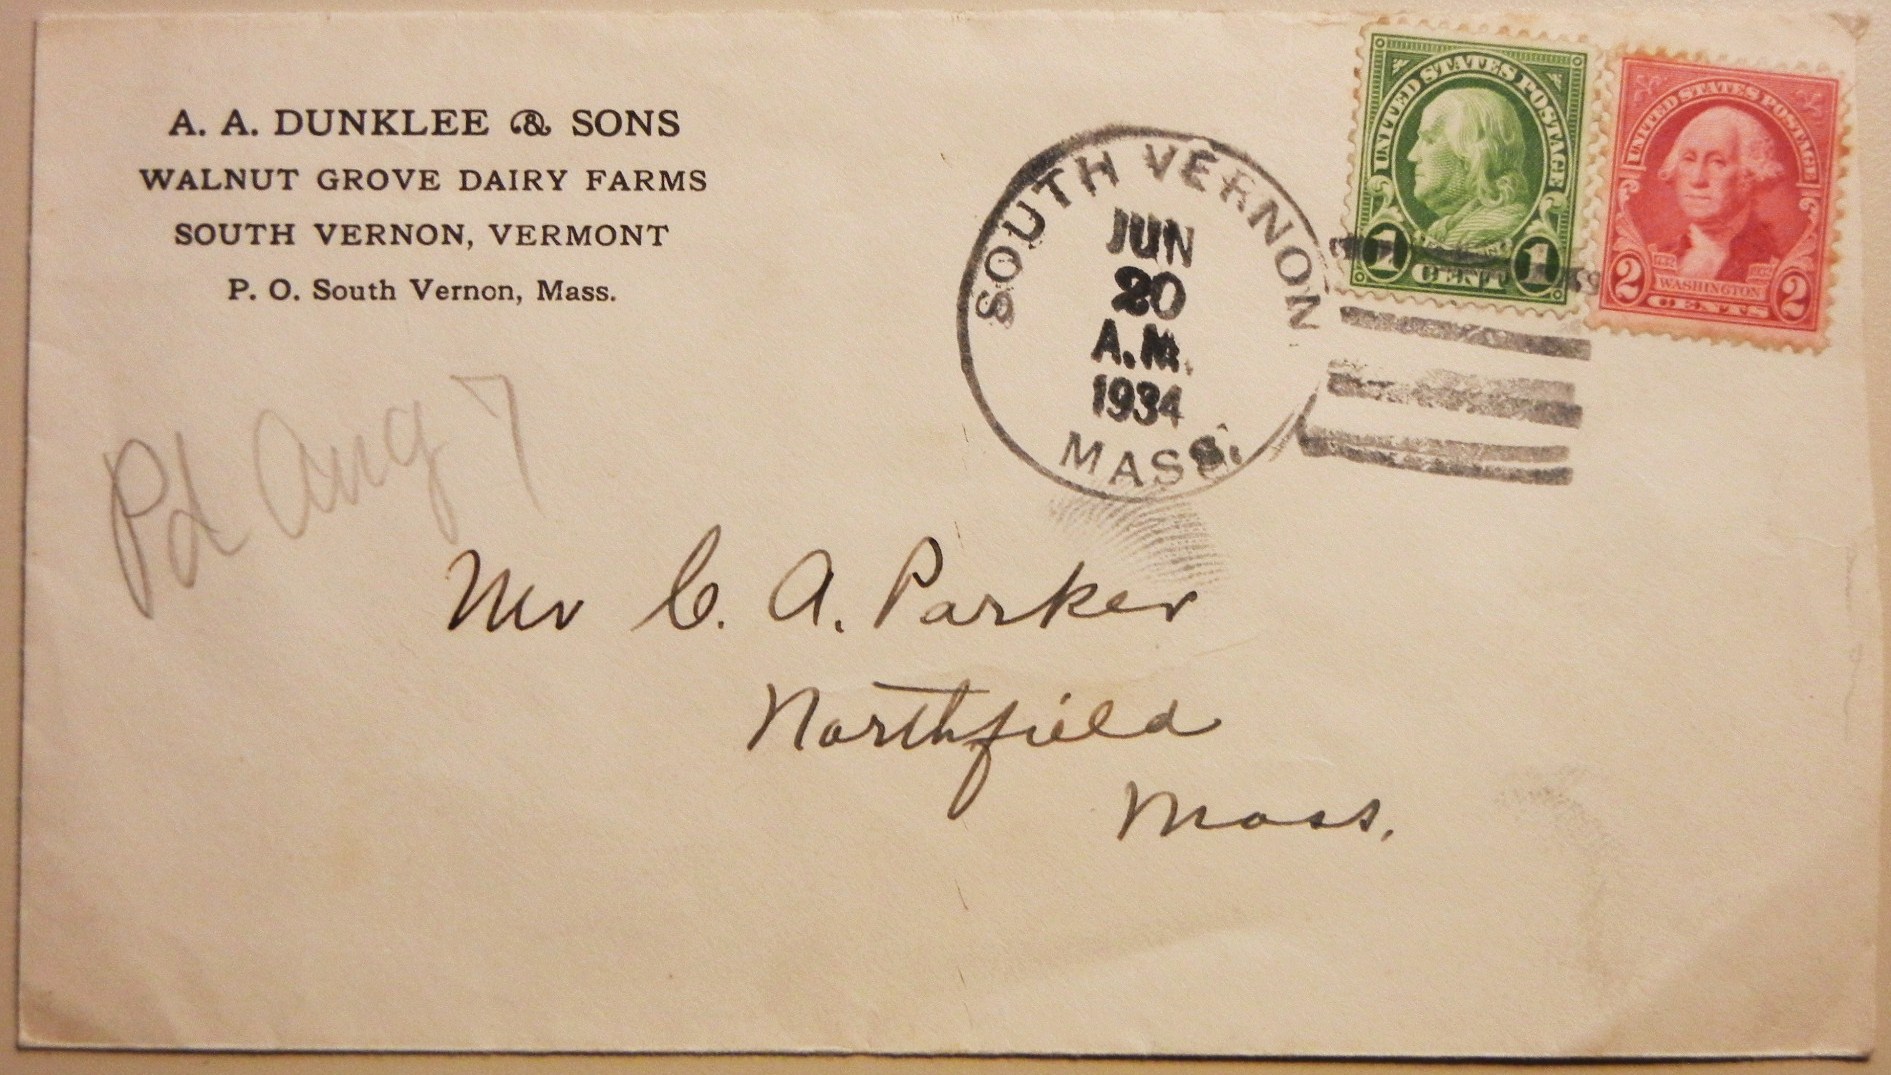 A. A. DUNKLEE & SONS
WALNUT GROVE DAIRY FARMS
SOUTH VERNON, VERMONT
P. O. South Vernon, Mass.
SOUTH VERNON
JUN
20
A.M.
1934
MASS.
UNITED STATES POSTAGE
1 CENT 1
UNITED STATES POSTAGE
1732 1932
WASHINGTON
2 CENTS 2
Pd Aug 7
Mr C. A. Parker
Northfield
Mass.